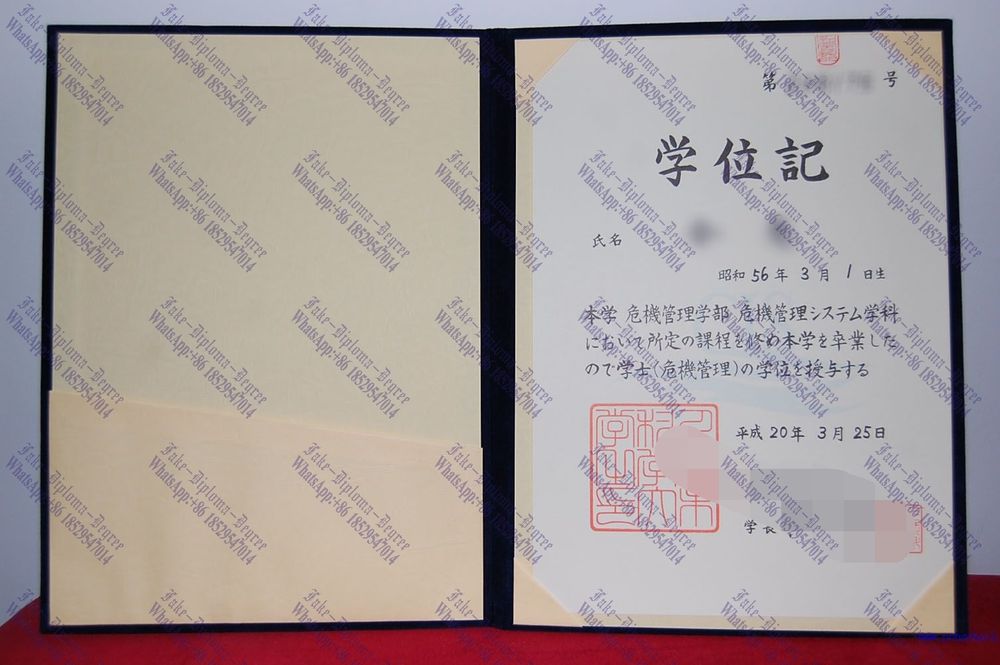 第
号
学位記
氏名
昭和56年3月1日生
本学 危機管理学部 危機管理システム学科
において所定の課程を修め本学を卒業した
ので学士(危機管理)の学位を授与する
平成20年3月25日
学長
Fake-Diploma-Degree
WhatsApp:+86 18529547014